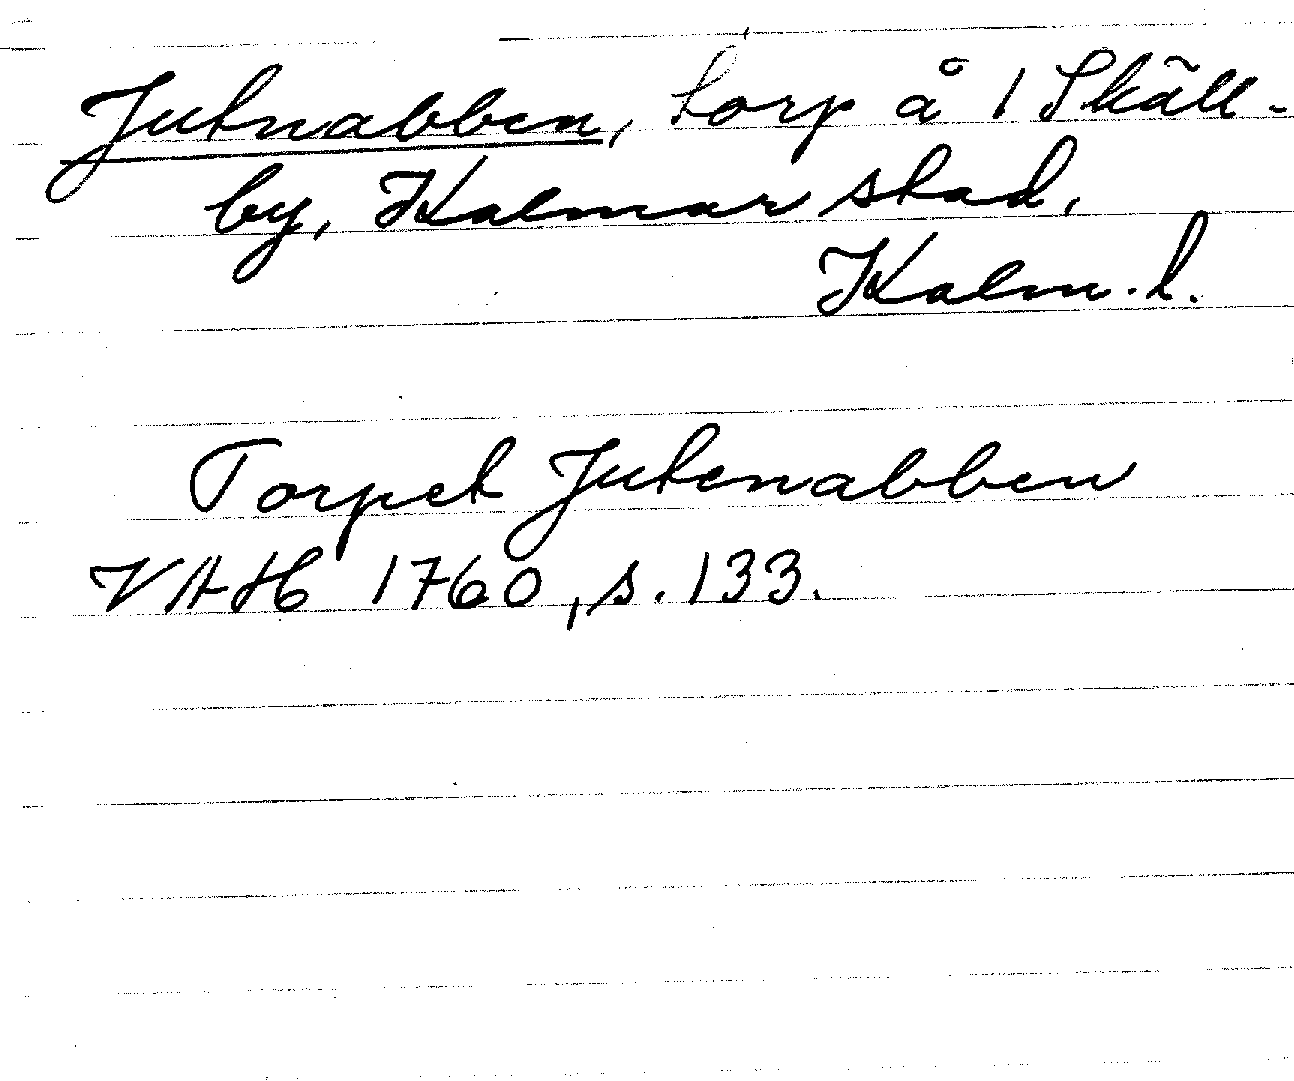 Jutnabben, torp å 1 Skäll-
by, Kalmar stad,
Kalm. l.
Torpet Jutenabben
VAH 1760, s. 133.